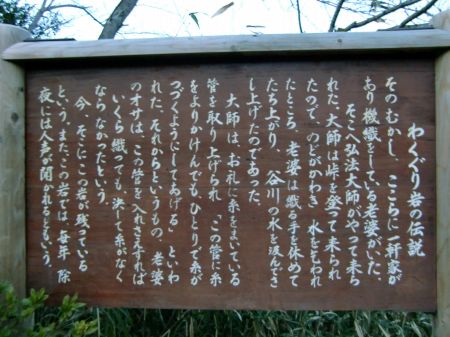 わくぐり岩の伝説
そのむかし、ここらに一軒家が
あり機織をしている老婆がいた。
そこへ弘法大師がやって来ら
れた。大師は峠を登って来られ
たので、のどがかわき、水をもわれ
たところ、老婆は織る手を休めて
たち上がり、谷川の水を汲んでさ
し上げたのであった。
大師は、お礼に糸をまいている
管を取り上げられ「この管に糸
をよりかけんでもひとりで糸が
つづくようにしてあげる」といわ
れた。それからというもの、老婆
のオサは、この管を入れさえすれば
いくら織っても、決して糸がなく
ならなかったという。
今、そこにこの岩が残っている
という。また、この岩では、毎年、除
夜には人声が聞かれるともいう。